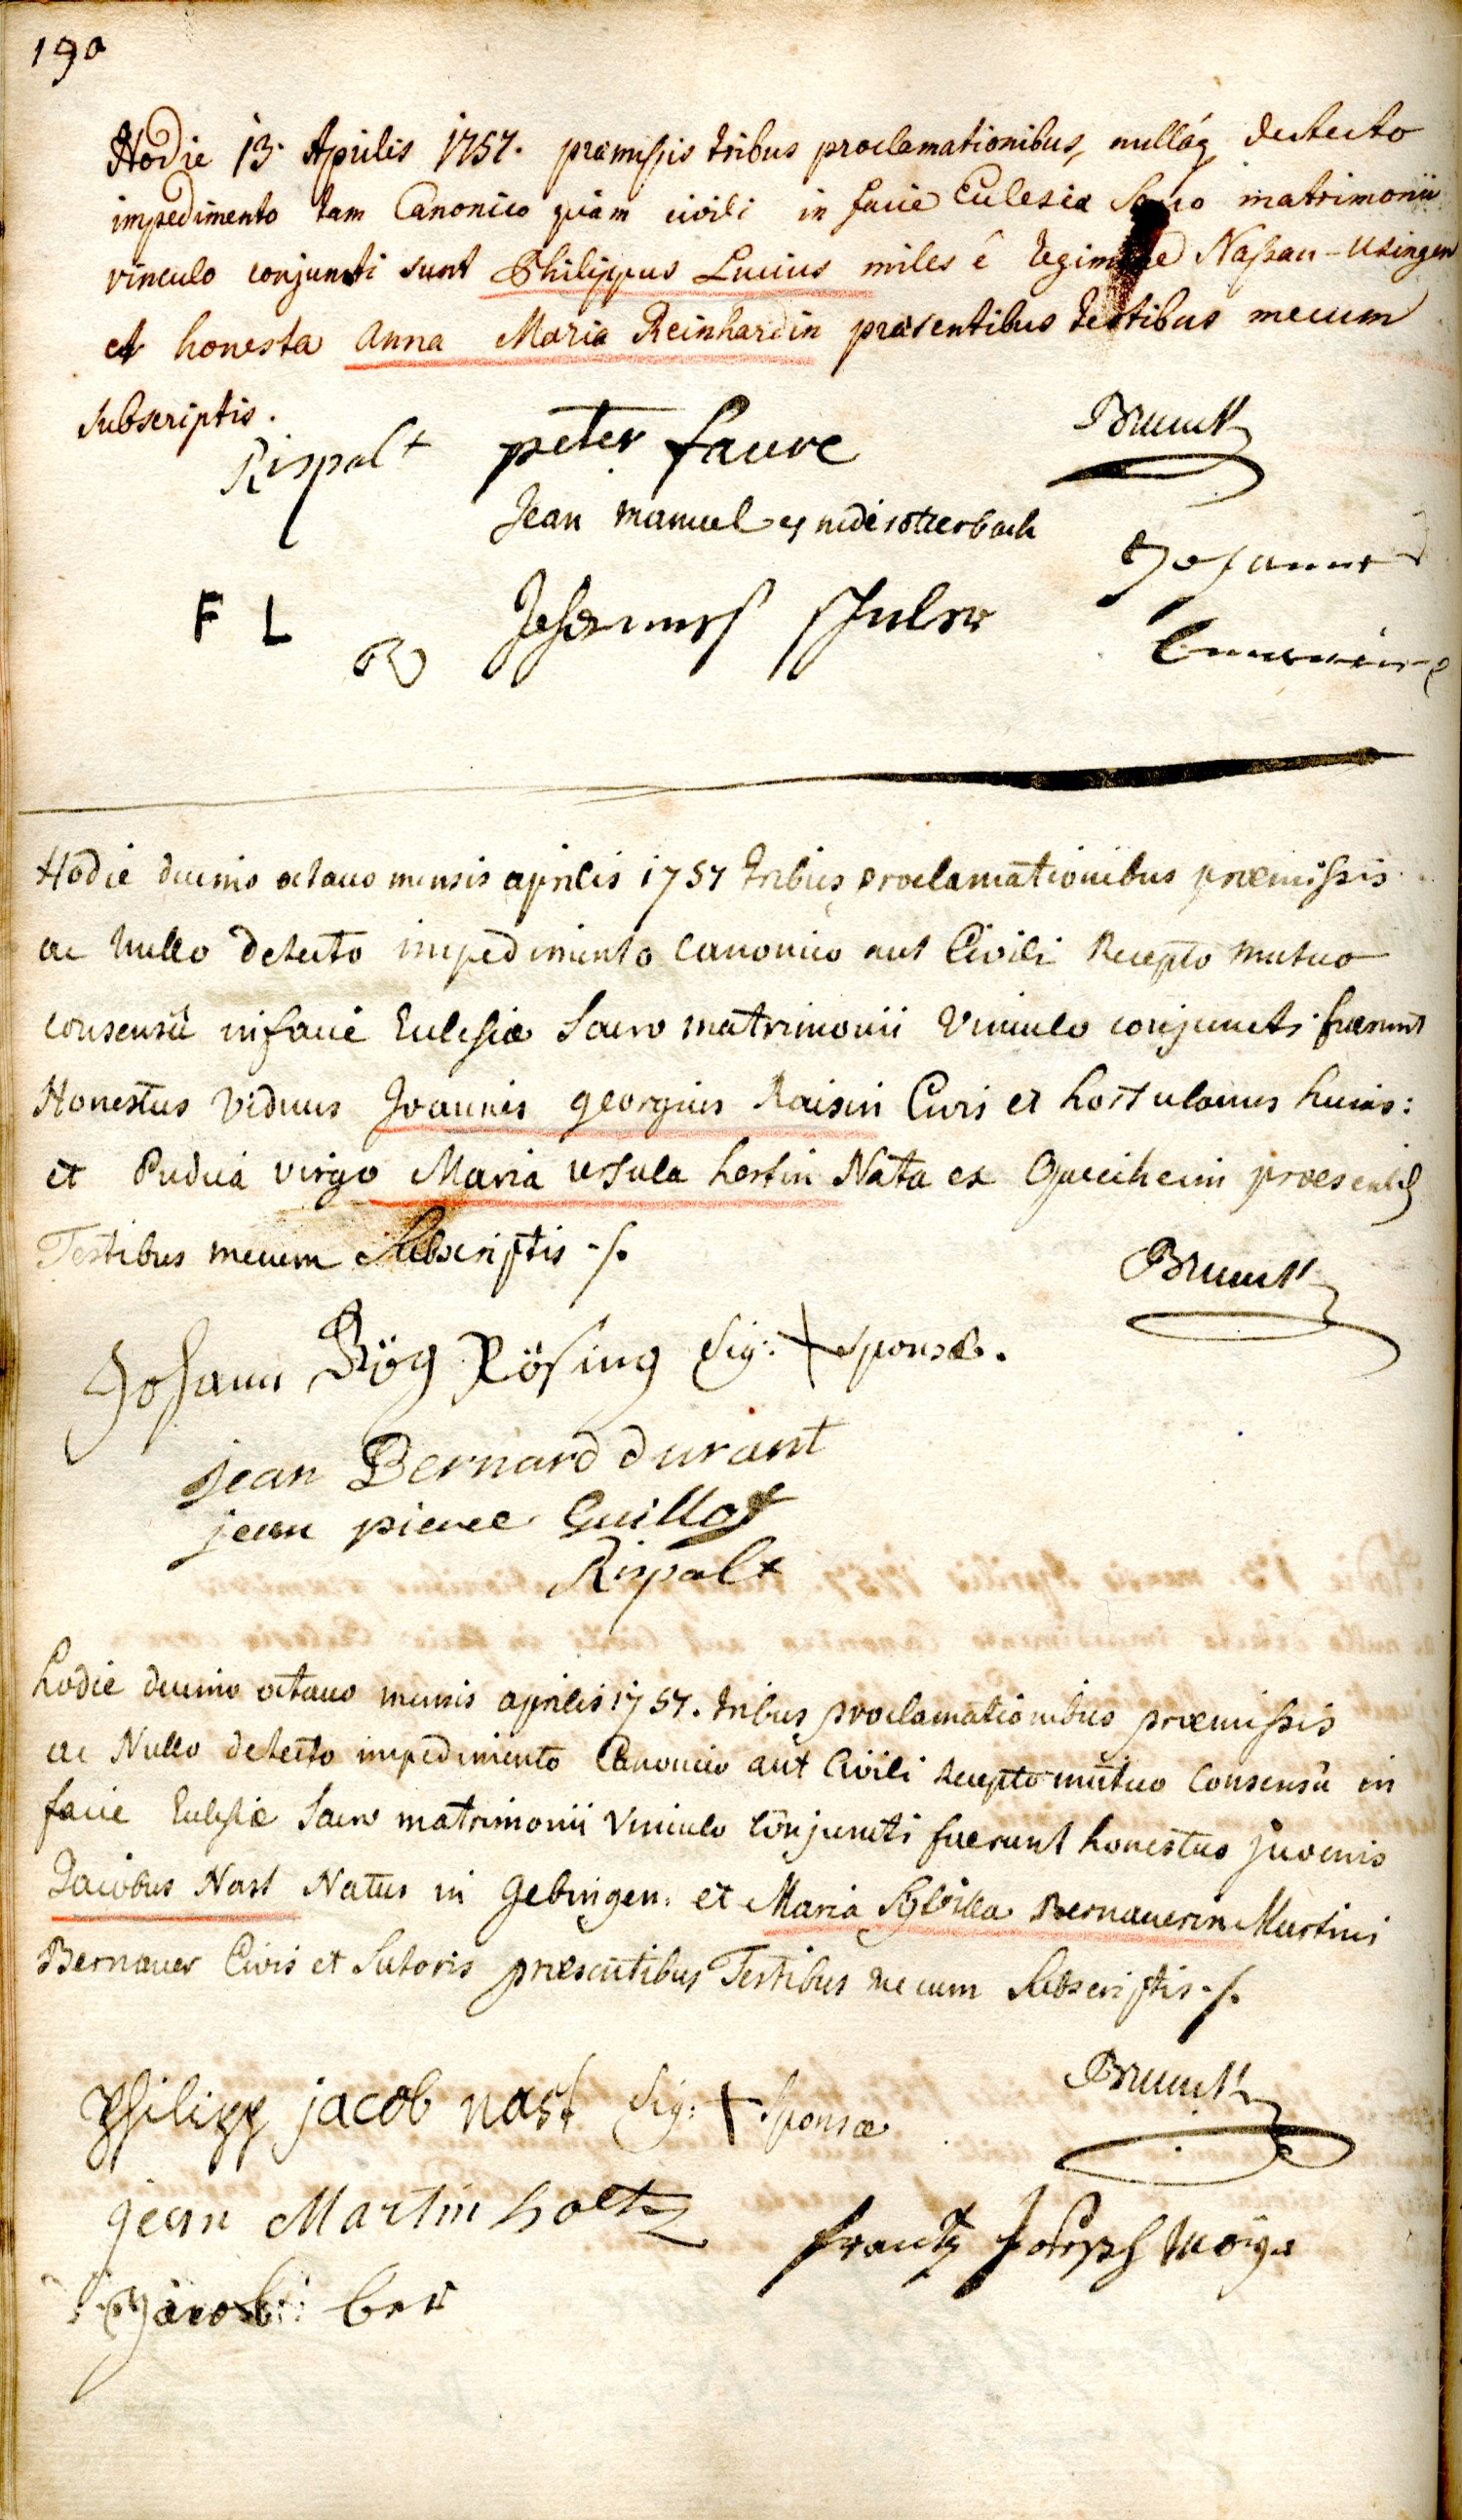 190
Hodie 13. Aprilis 1757. præmissis tribus proclamationibus, nullóq detecto
impedimento tam Canonico quàm civili in facie Ecclesiæ Sacro matrimonii
vinculo conjuncti sunt Philippus Lucius miles è regimine Nassau-Usingen
et honesta Anna Maria Reinhardin præsentibus testibus mecum
subscriptis.
Rispalt peter faure Brunck
Jean manuel
Johannes
F L Johannes
R
Hodie decimo octavo mensis aprilis 1757 tribus proclamationibus præmissis
ac nullo detecto impedimento Canonico aut Civili Recepto mutuo
consensû in facie Ecclesiæ Sacro matrimonii Vinculo conjuncti fuerunt
Honestus Viduus Joannes georgius Raisin Civis et hortulanus huias:
et Pudica virgo Maria ursula hertin Nata ex præsentib9
Testibus mecum Subscriptis ·/.
Brunck
Johann Rösing Sig: + sponsæ.
jean Bernard durant
jean pierre Guillot
Rispalt
hodie decimo octavo mensis aprilis 1757. tribus proclamationibus præmissis
ac Nullo detecto impedimento Canonico aut Civili Recepto mutuo Consensû in
facie Ecclesiæ Sacro matrimonii Vinculo Conjuncti fuerunt honestus juvenis
Jacobus Nast Natus in gebingen: et Maria Sybilla Bernauerin Martini
Bernauer Civis et Sutoris præsentibus Testibus mecum Subscriptis ·/.
Brunck
Philipp jacob nast Sig: + Sponsæ
jean Martin holtz
frantz Joseph
Jacob ber